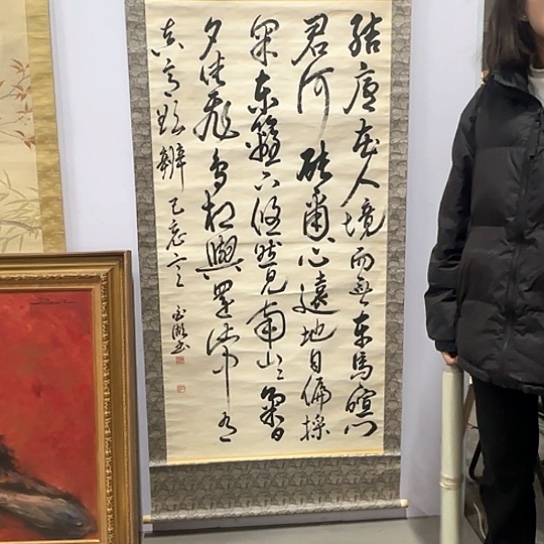 結廬在人境而無車馬喧問
君何能爾心遠地自偏採
菊東籬下悠然見南山々氣日
夕佳飛鳥相與還此中有
真意欲辨已忘言
書